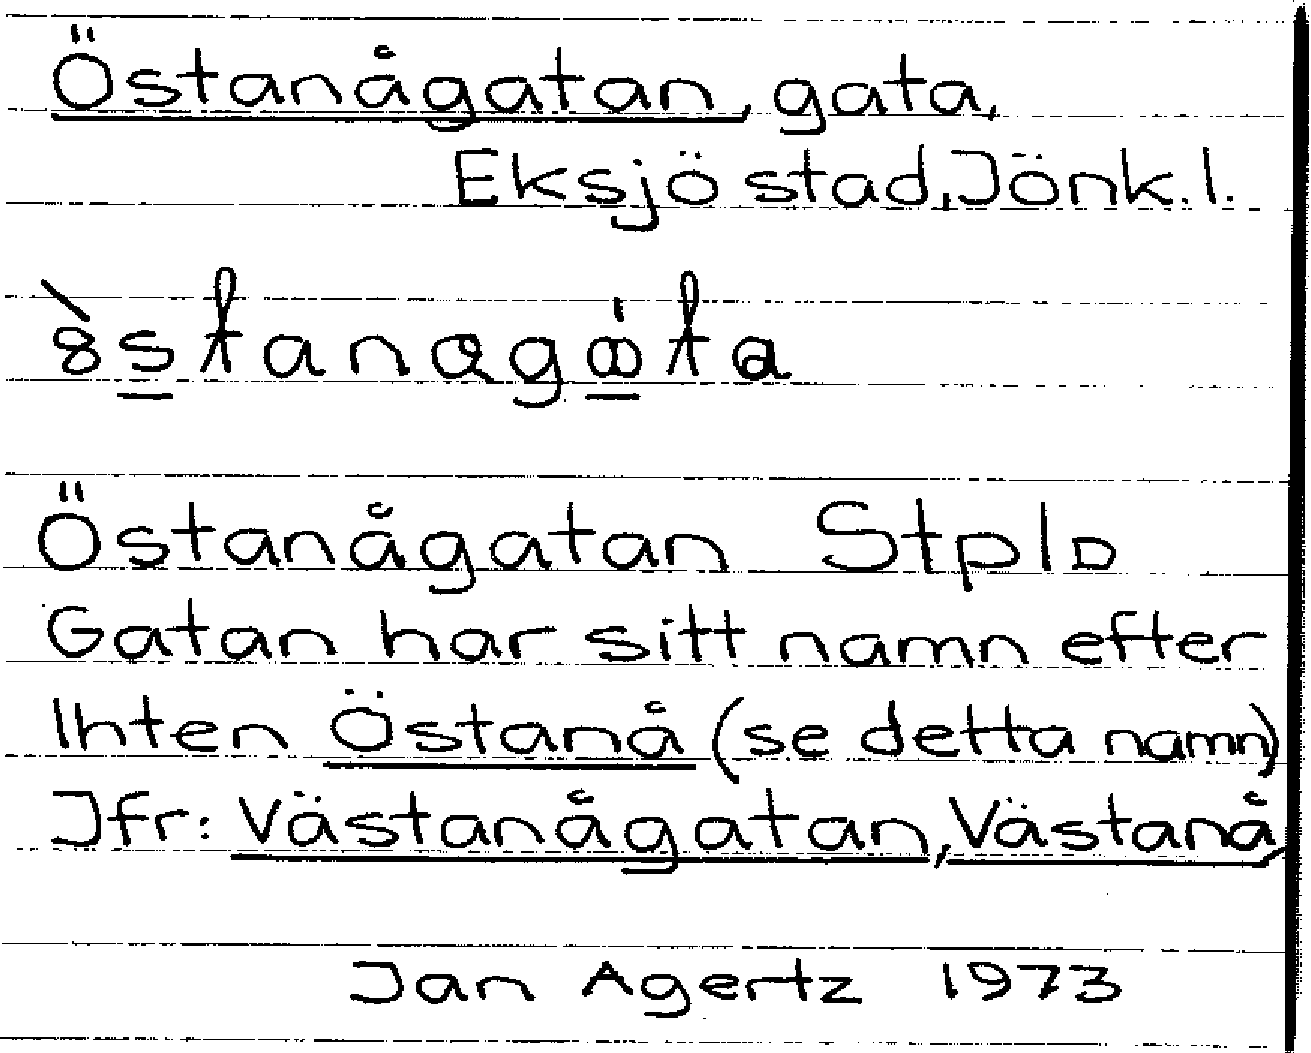 Östanågatan, gata,
Eksjö stad, Jönk. l.
Östanågatan Stpln
Gatan har sitt namn efter
Ihten Östanå (se detta namn)
Jfr: Västanågatan, Västanå
Jan Agertz 1973